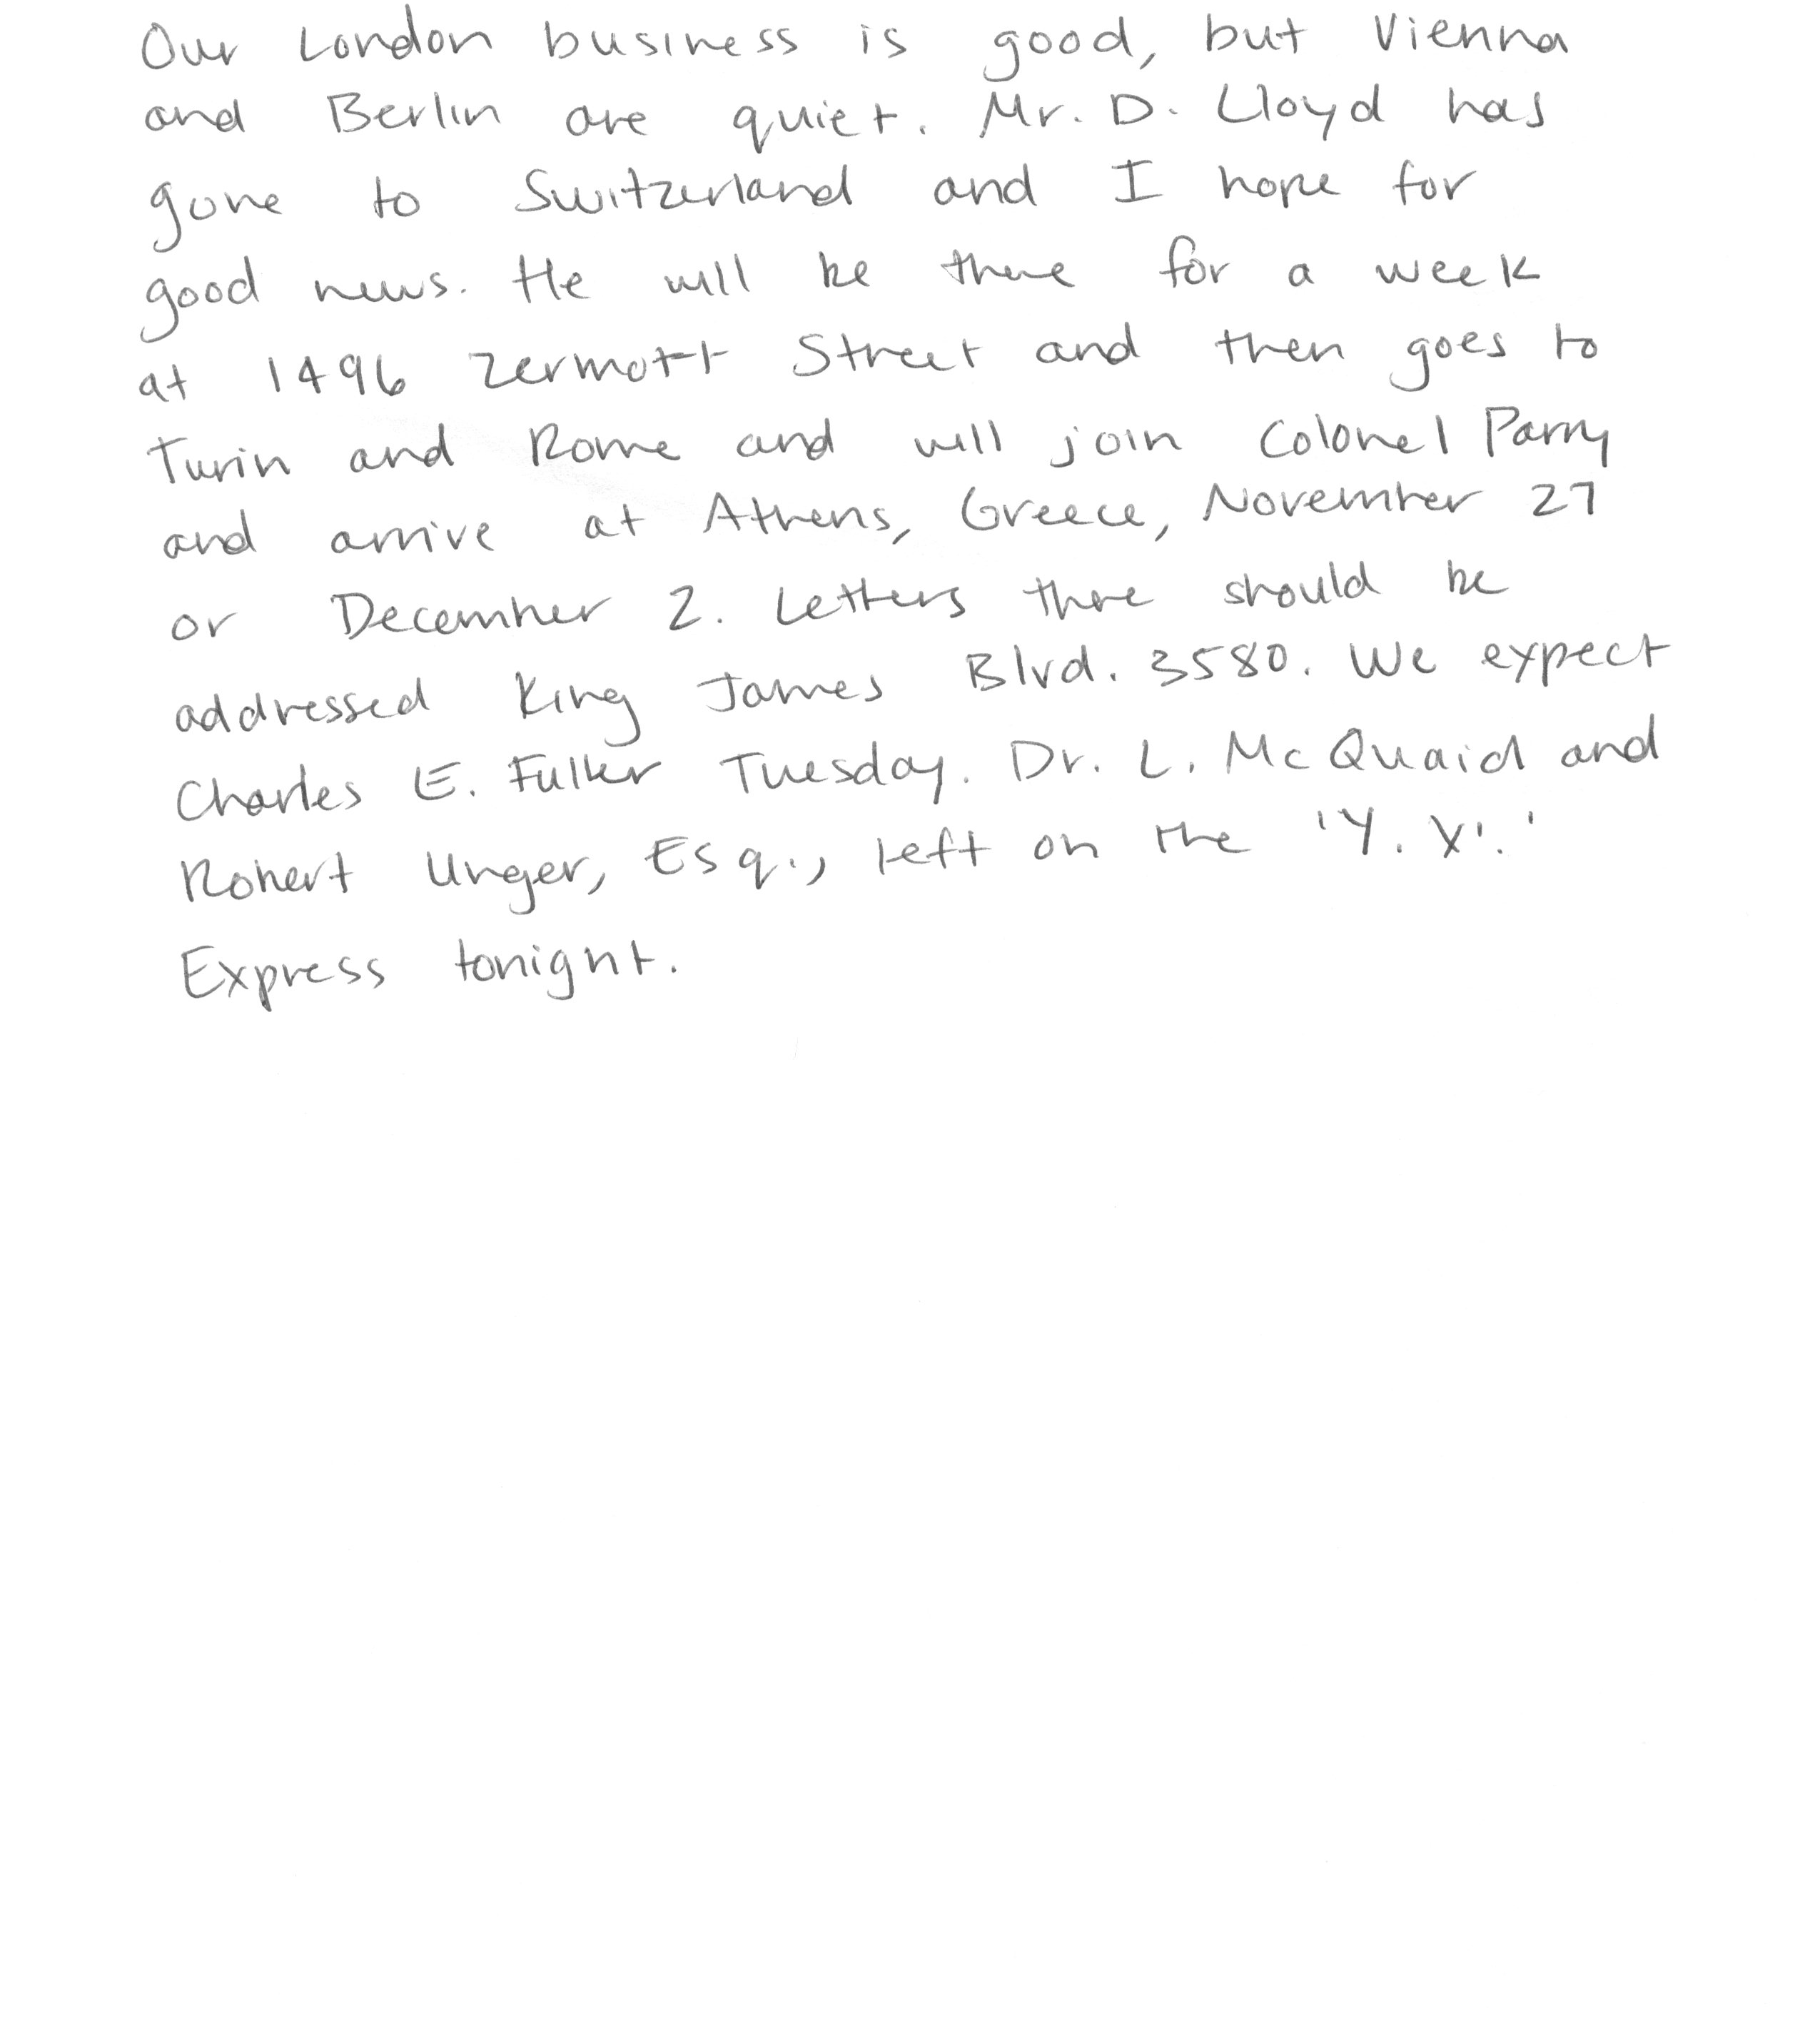 Our London business is good, but Vienna
and Berlin are quiet. Mr. D. Lloyd has
gone to Switzerland and I hope for
good news. He will be there for a week
at 1496 Zermott Street and then goes to
Turin and Rome and will join Colonel Parry
and arrive at Athens, Greece, November 27
or December 2. Letters there should be
addressed King James Blvd. 3580. We expect
Charles E. Fuller Tuesday. Dr. L. McQuaid and
Robert Unger, Esq., left on the 'Y. X'.'
Express tonight.